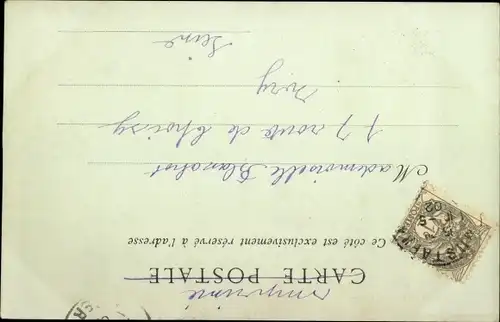 imprimé
CARTE POSTALE
Ce côté est exclusivement réservé à l'adresse
Mademoiselle Blanchet
17 route de Choisy
Ivry
Seine